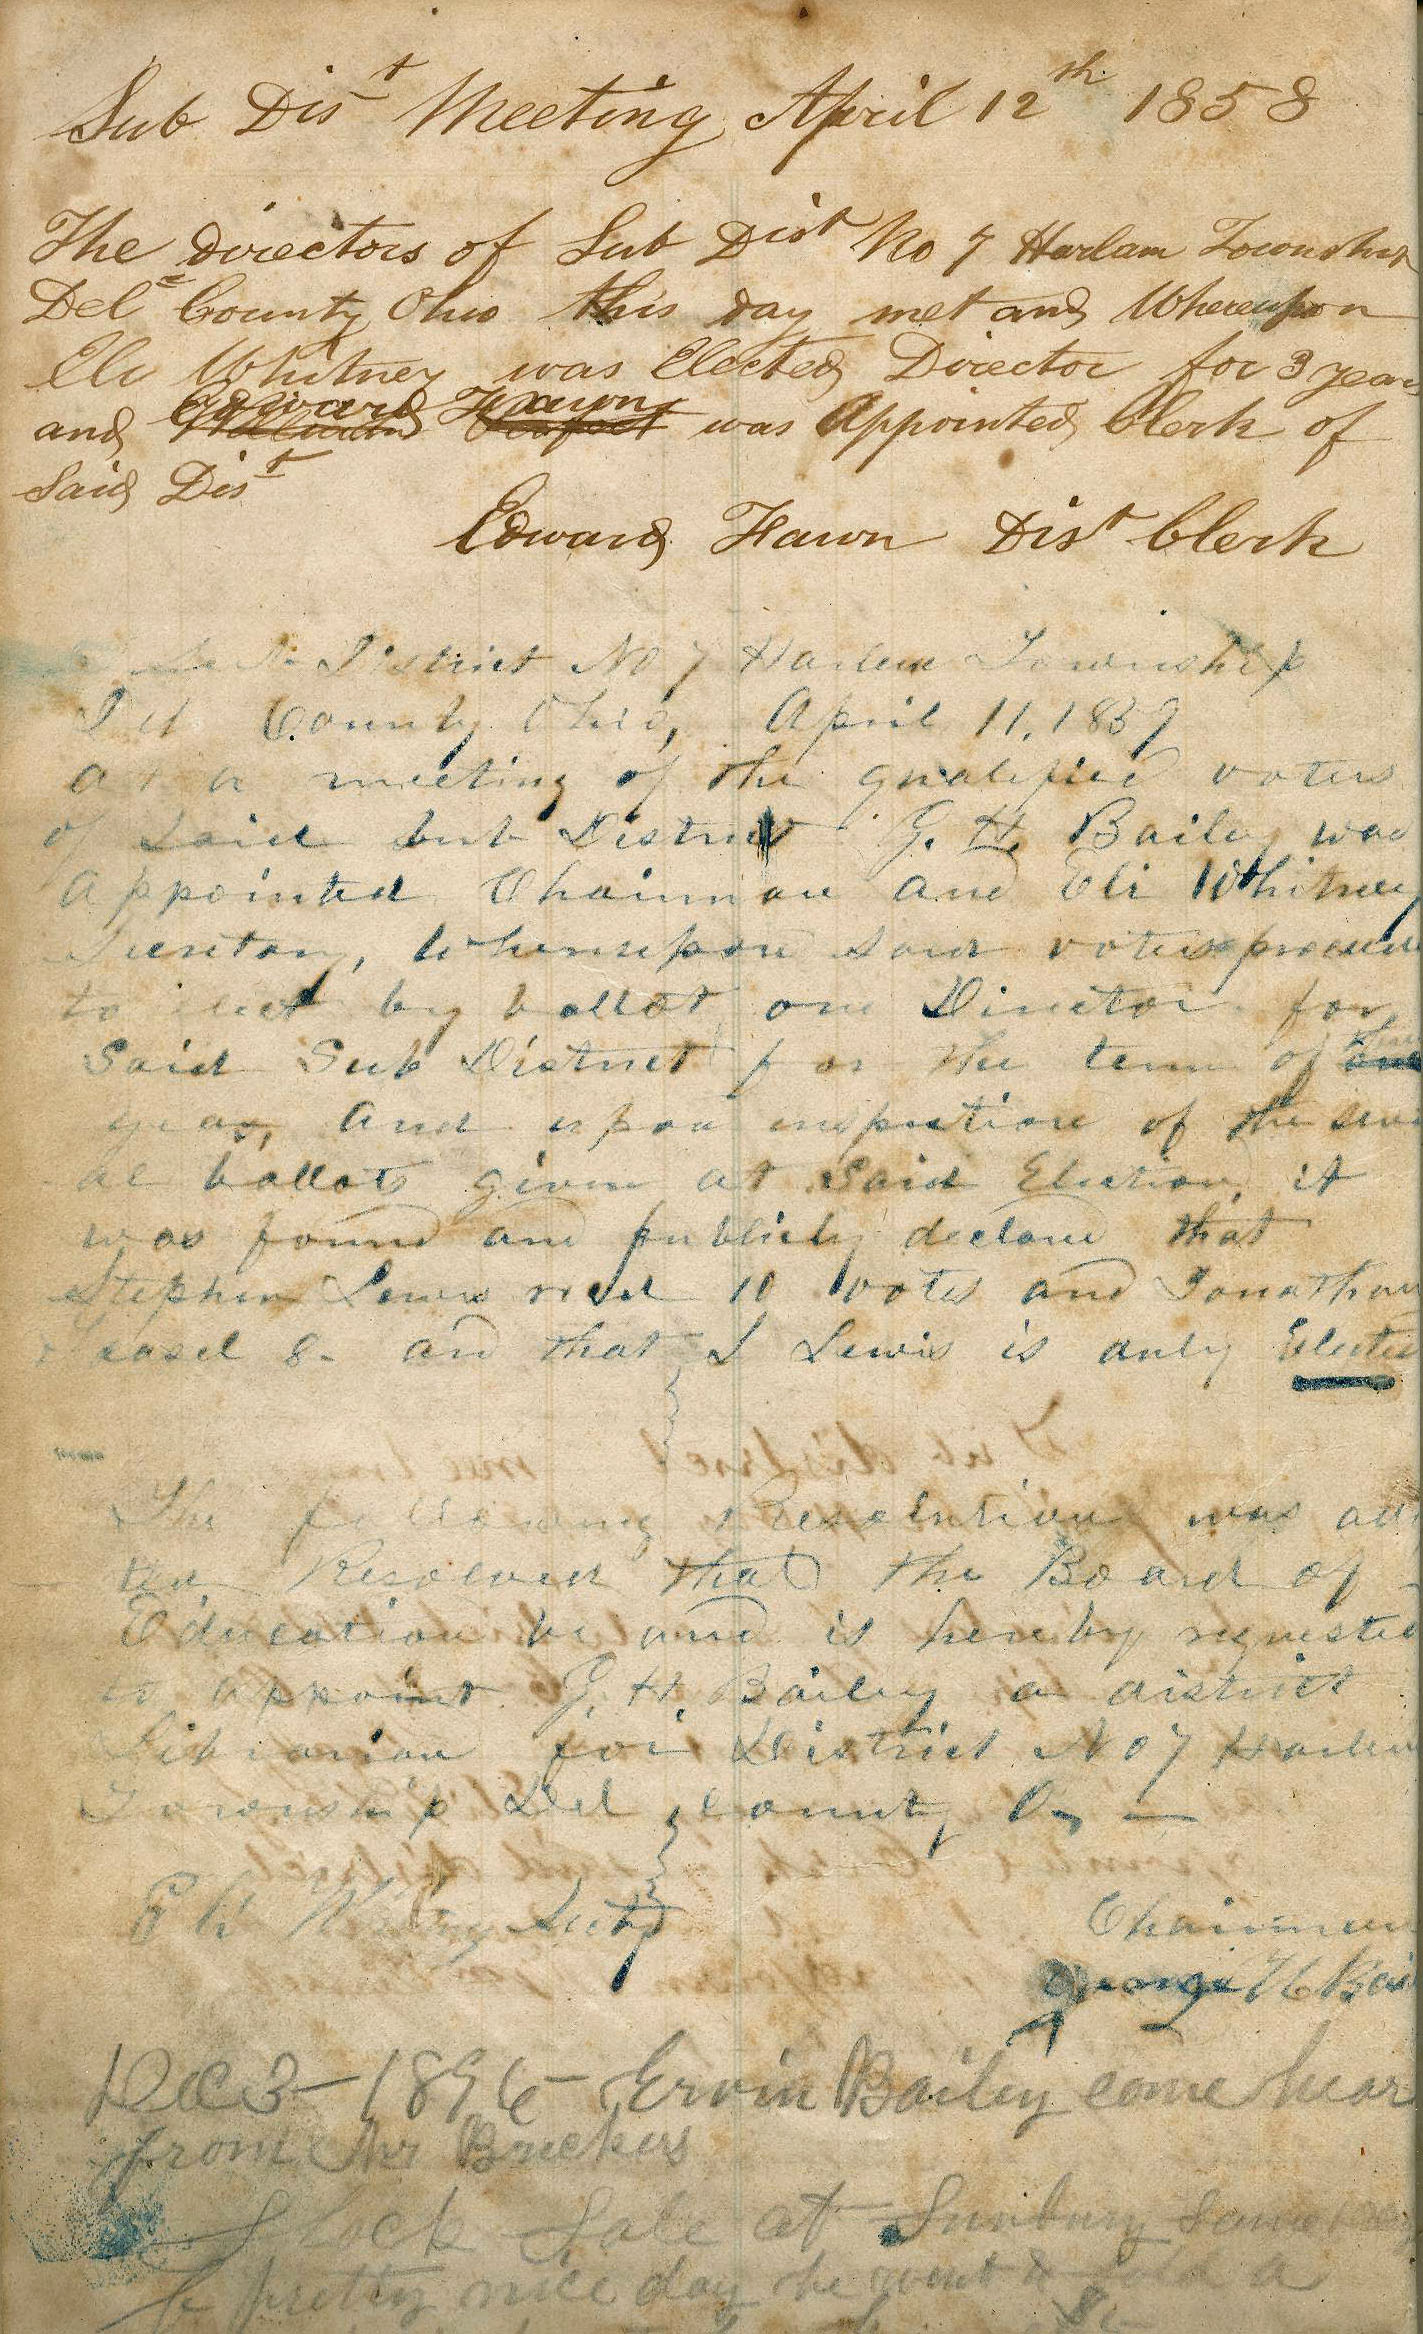 Sub Dist Meeting April 12th 1858
The Directors of Sub Dist No 7 Harlam Township
Dele County Ohio this day met and Whereupon
Eli Whitney was Elected Director for 3 years
Edward Hawn
and was Appointed Clerk of
Said Dist
Edward Hawn Dist Clerk
Sub District No 7 Harlem Township
Del County Ohio, April 11, 1859
at a meeting of the qualified voters
of Said Sub District G. H. Bailey was
appointed Chairman and Eli Whitney
Secretary, Whereupon said voters
to elect by ballot one Director for
Said Sub District for the term of
year, and upon inspection of the sever
al ballots given at Said Election it
was found and publicly declared that
Stephen Lewis 10 votes and Jonathan
8. and that S Lewis is only Elected
The following Resolution was
Resolved that the Board of
Education be and is hereby requested
to appoint G. H. Bailey a district
Librarian for District No 7 Harlem
Township Del County O,
Chairman
George H Bai
Dec 3 - 1896 - Ervin Bailey come hear
from Mr Brickers
Stock Sale at Sunbury
pretty nice day he went & sold a